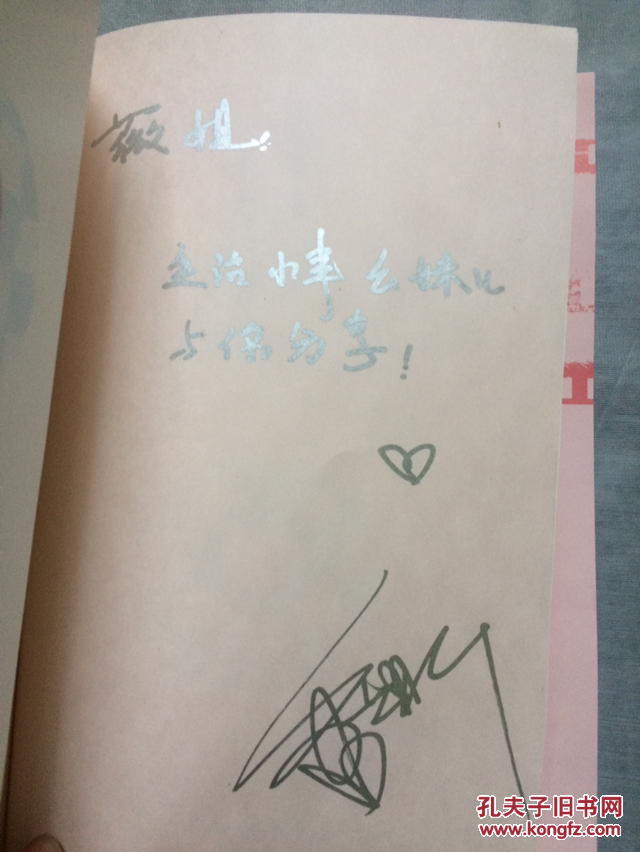 薇姐：
立治小事么妹儿
与你分享！
孔夫子旧书网
www.kongfz.com